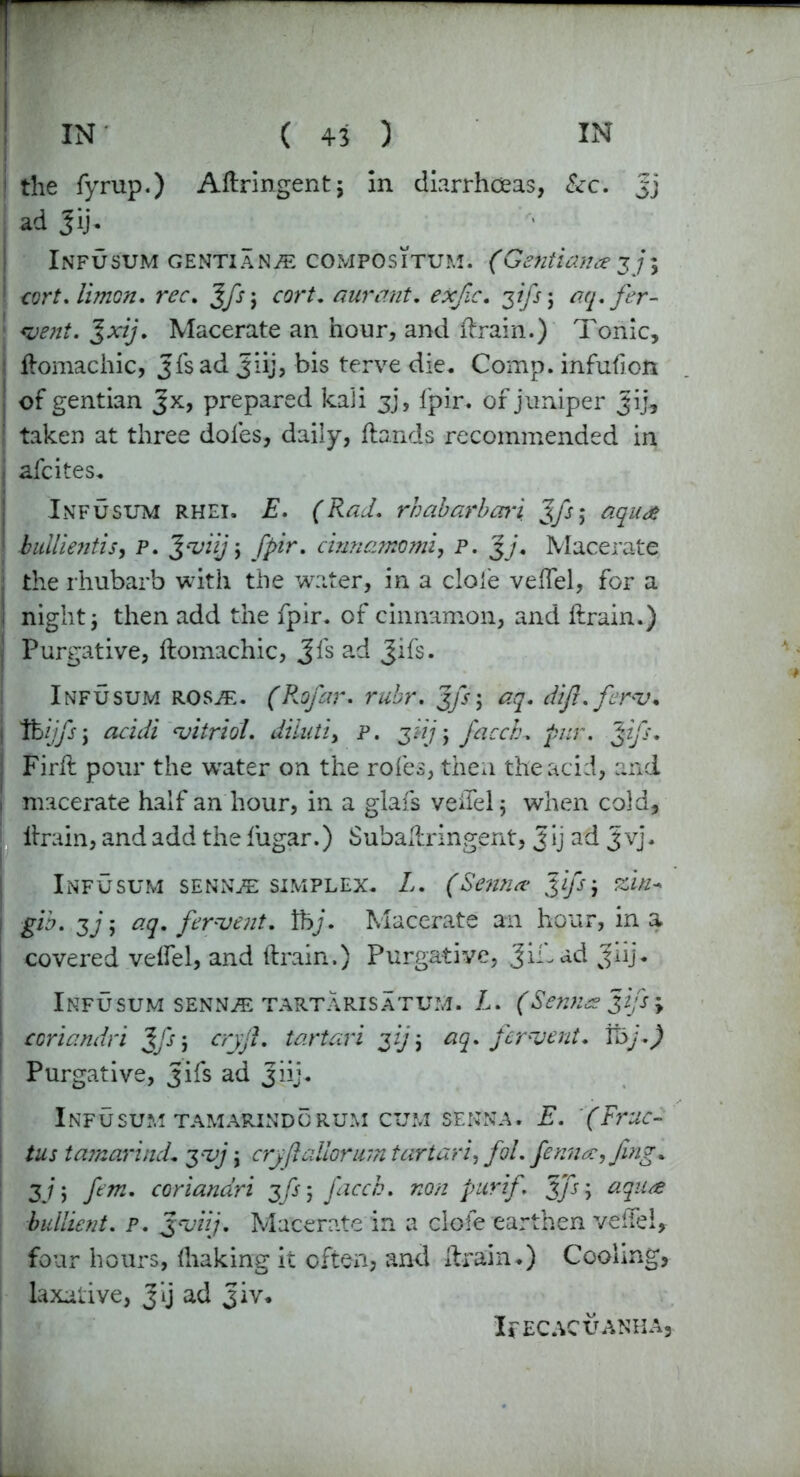 IN ( 43 ) IN
the ſyrup.) Aſtringent; in diarrhœas, &c. ℥j
ad ℥ij.
INFŪSUM GENTIĀNÆ COMPOSĬTUM. (Gentianæ ʒj;
cort. limon. rec. ℥ſs; cort. aurant. exſic. ʒiſs; aq. fer-
vent. ℥xij. Macerate an hour, and ſtrain.) Tonic,
ſtomachic, ℥ſs ad ℥iij, bis terve die. Comp. infuſion
of gentian ℥x, prepared kali ʒj, ſpir. of juniper ℥ij,
taken at three doſes, daily, ſtands recommended in
aſcites.
INFŪSUM RHEI. E. (Rad. rhabarbari ℥ſs; aquæ
bullientis, P. ℥viij; ſpir. cinnamomi, P. ℥j. Macerate
the rhubarb with the water, in a cloſe veſſel, for a
night; then add the ſpir. of cinnamon, and ſtrain.)
Purgative, ſtomachic, ℥ſs ad ℥iſs.
INFŪSUM ROSÆ. (Roſar. rubr. ℥ſs; aq. diſt. ferv.
℔ijſs; acidi vitriol. diluti, P. ʒiij; ſacch. pur. ℥iſs.
Firſt pour the water on the roſes, then the acid, and
macerate half an hour, in a glaſs veſſel; when cold,
ſtrain, and add the ſugar.) Subaſtringent, ℥ij ad ℥vj.
INFŪSUM SENNÆ SIMPLEX. L. (Sennæ ℥iſs; zin-
gib. ʒj; aq. fervent. ℔j. Macerate an hour, in a
covered veſſel, and ſtrain.) Purgative, ℥iſs ad ℥iij.
INFŪSUM SENNÆ TARTĂRISĀTUM. L. (Sennæ ℥iſs;
coriandri ℥ſs; cryſt. tartari ʒij; aq. fervent. ℔j.)
Purgative, ℥iſs ad ℥iij.
INFŪSUM TAMARINDŌRUM CUM SENNA. E. (Fruc-
tus tamarind. ʒvj; cryſtallorum tartari, fol. ſennæ, ſing.
ʒj; ſem. coriandri ʒſs; ſacch. non purif. ℥ſs; aquæ
bullient. P. ℥viij. Macerate in a cloſe earthen veſſel,
four hours, ſhaking it often, and ſtrain.) Cooling,
laxative, ℥ij ad ℥iv.
IPECACŬANHA,